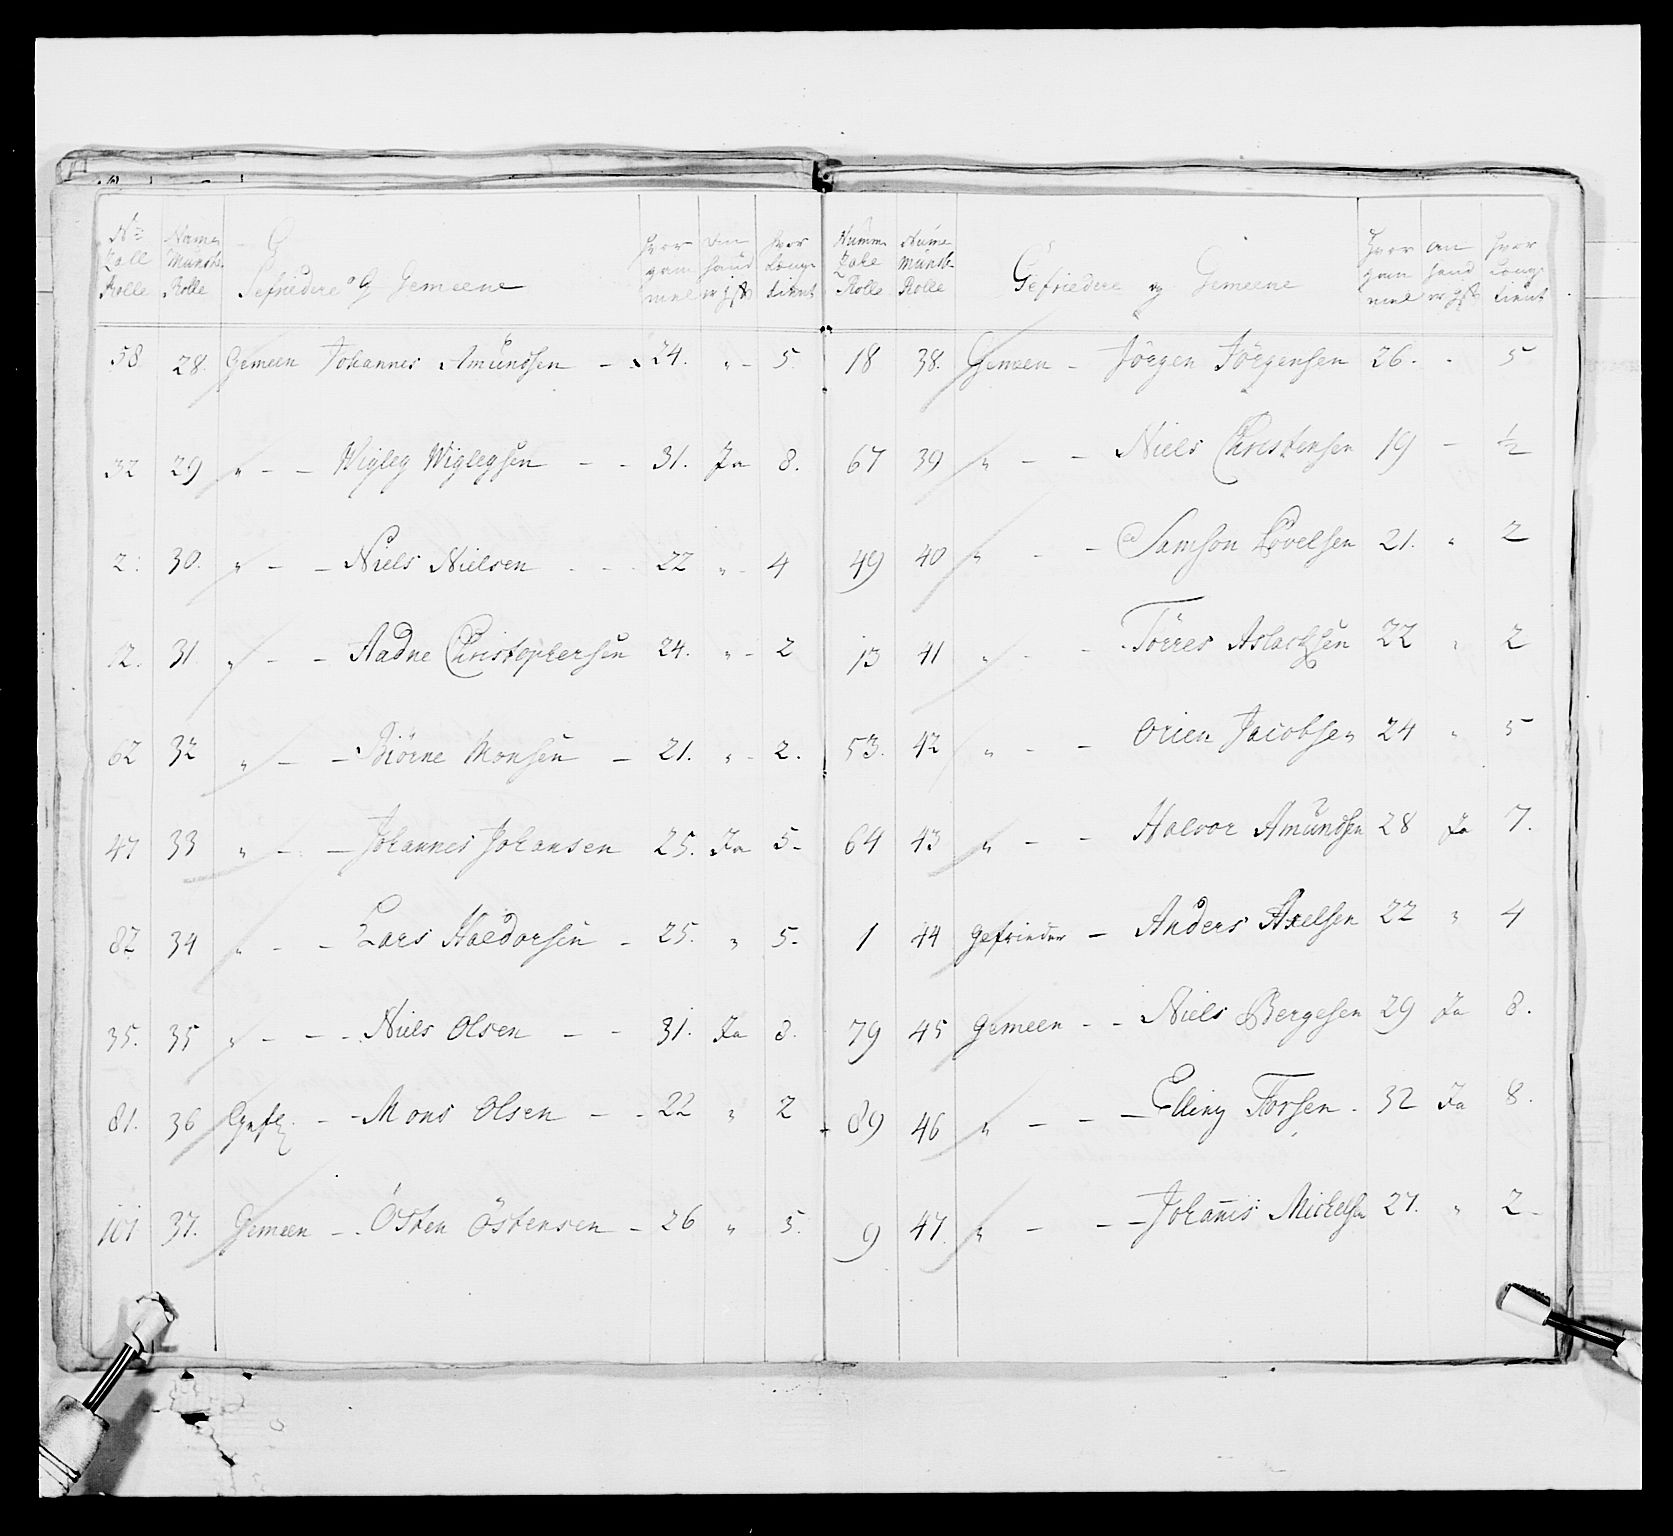 No Numer Hvor Om Hvor
Rolle Munst. gam haud Længe
Rolle Gefriedere og Gemeene mel er gift tient
58 28. Gemeen Johannes Amundsen 24. „ 5.
32 29 „ Wigleg Wiglegsen 31. Ja 8.
2. 30. „ Niels Nielsen 22 „ 4
12. 31 „ Aadne Christophersen 24. „ 2
62 32 „ Biörne Monsen 21. „ 2.
47 33 „ Johannes Johansen 25. Ja 5
82 34 „ Lars Haldorsen 25. „ 5
35. 35 „ Niels Olsen 31. Ja 8.
81. 36 Gefr. Mons Olsen 22 „ 2
101 37. Gemeen Östen Östensen 26 „ 5.
Numm Nume Hvor an Hvor
Rolle Munst. gam haud Længe
Rolle Gefriedere og Gemeene mel er gift tient
18 38. Gemeen Jörgen Jörgensen 26. 5
67 39 „ Niels Christensen 19 – ½
49 40 „ Samson Lövelsen 21. „ 2
13 41 „ Törres Aslachsen 22 „ 2
53. 42 „ Orien Jacobsen 24 „ 5
64 43 „ Halvor Amundsen 28 Ja 7.
1 44 Gefrieder Anders Axelsen 22 „ 4
79 45 Gemeen Niels Bergesen 29 Ja 8.
89 46 „ Elling Torsen 32 Ja 8.
9 47. „ Johanis Mickelsen 27. „ 2